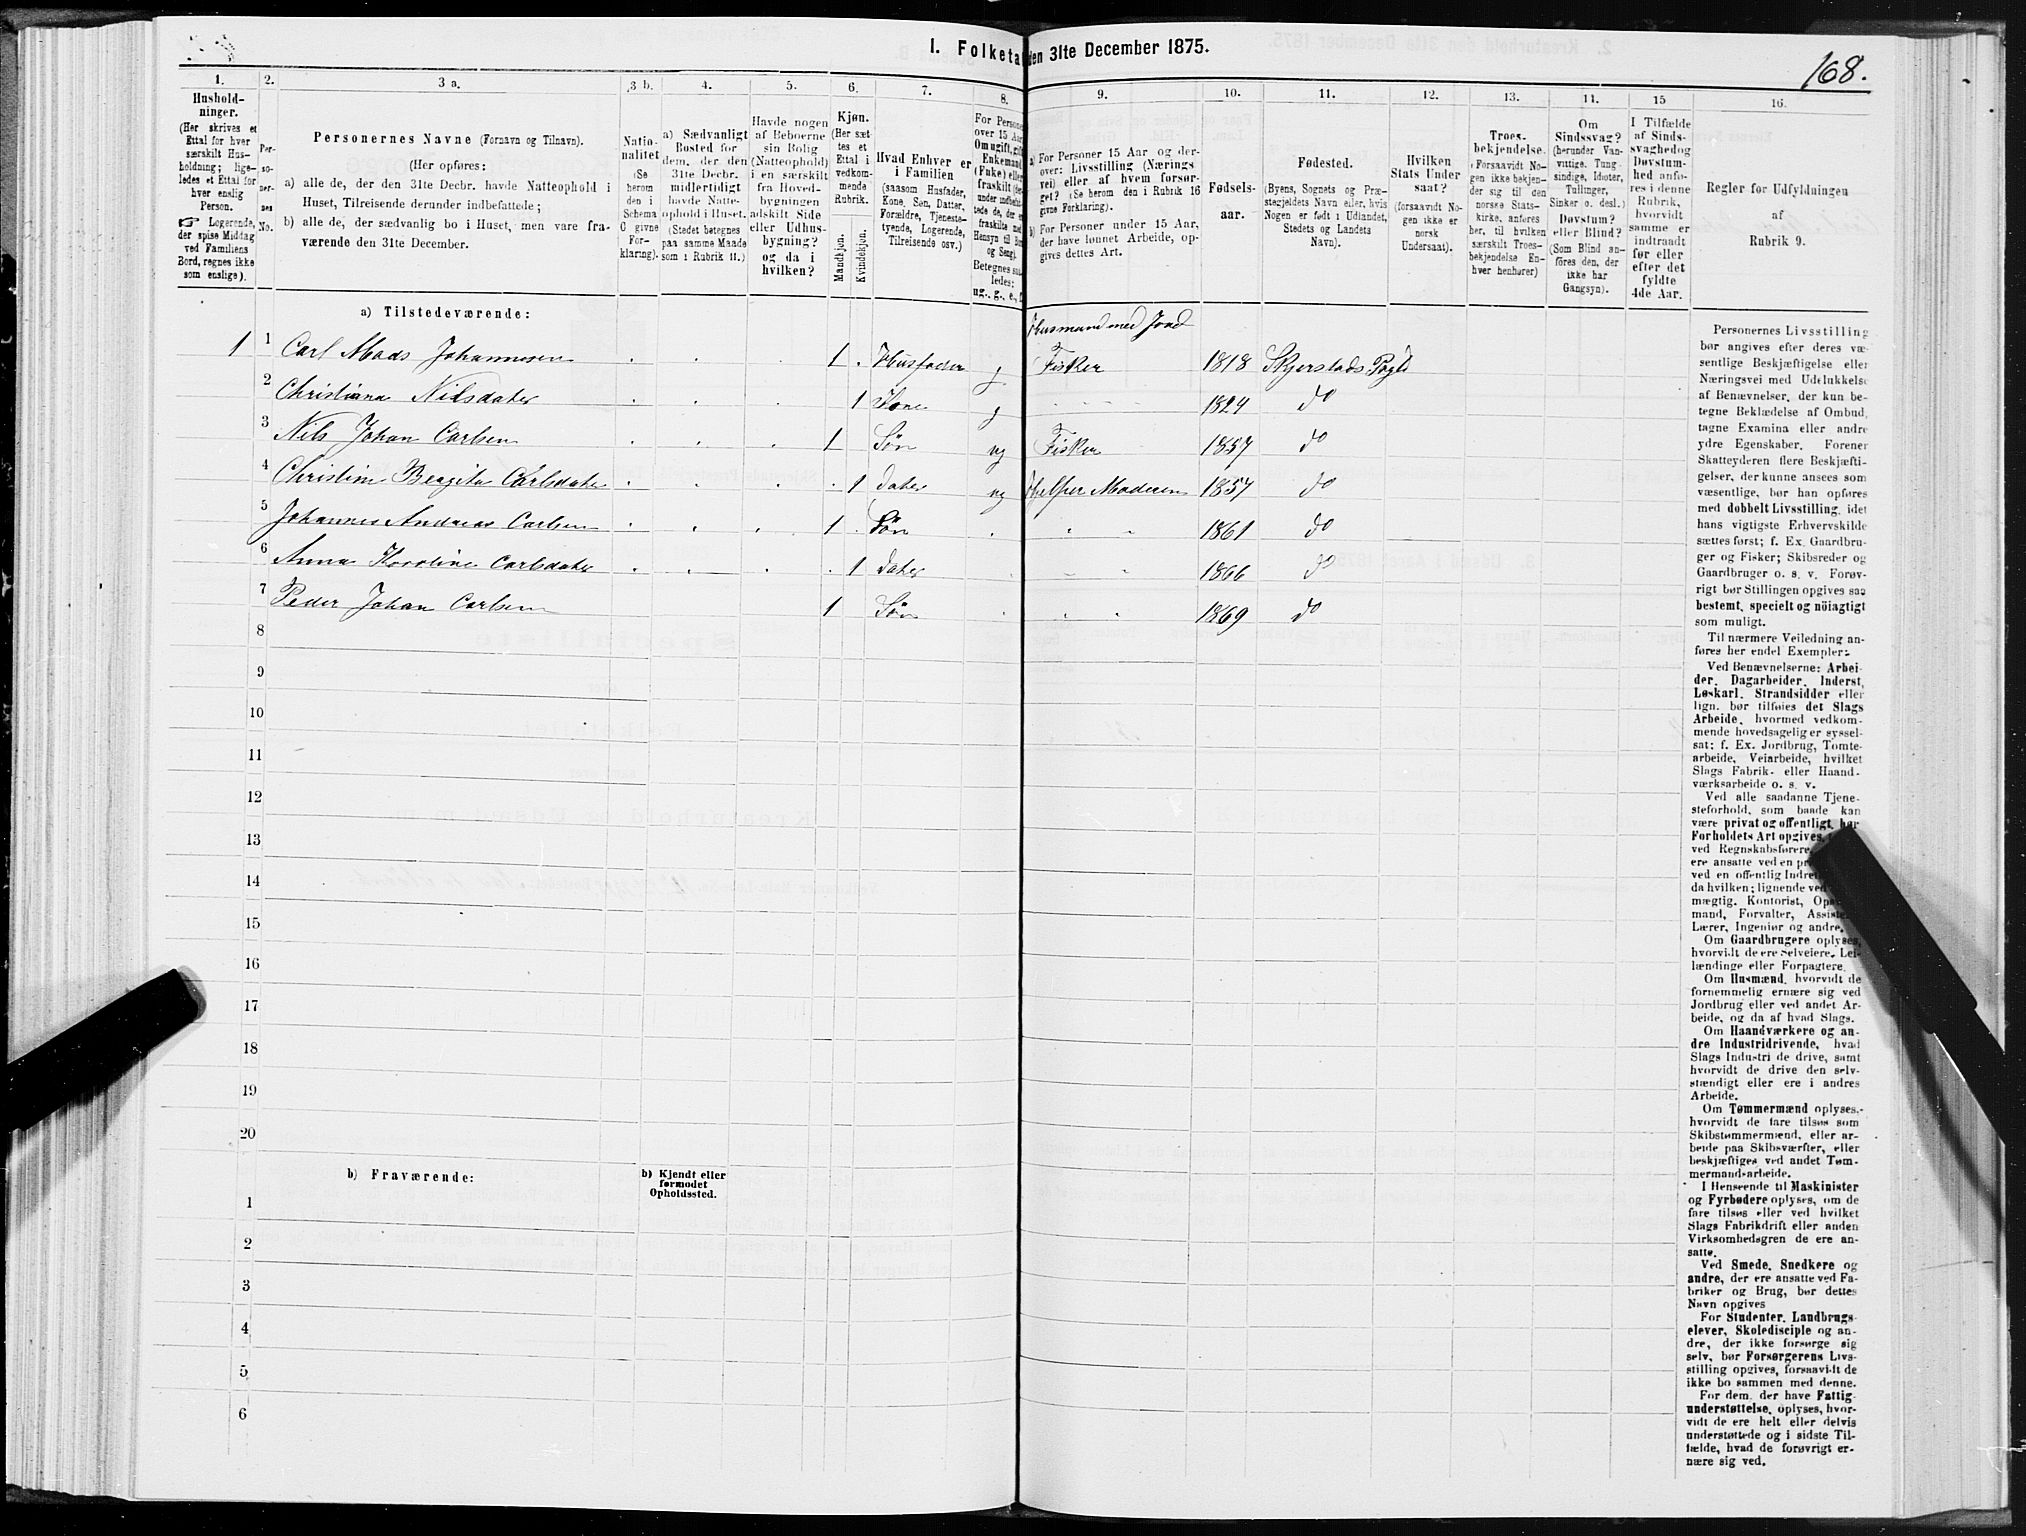 I. Folketa den 31te December 1875.
168.
1. 2. 3 a. 3 b. 4. 5. 6. 7. 8. 9. 10. 11. 12. 13. 14. 15 16.
Hushold-
ninger.
(Her skrives et
Ettal for hver
særskilt Hus-
holdning; lige-
ledes et Ettal for
hver enslig
Person.
☞ Logerende,
der spise Middag
ved Familiens
Bord, regnes ikke
som enslige).
Per-
so-
ner-
nes
No.
Personernes Navne (Fornavn og Tilnavn).
(Her opføres:
a) alle de, der den 31te Decbr. havde Natteophold i
Huset, Tilreisende derunder indbefattede;
b) alle de, der sædvanlig bo i Huset, men vare fra-
værende den 31te December.
Natio-
nalitet
(Se
herom
den i
Schema
C givne
For-
klaring).
a) Sædvanligt
Bosted for
dem, der den
31te Decbr.
midlertidigt
havde Natte-
ophold i Huset.
(Stedet betegnes
paa samme Maade
som i Rubrik 11.)
Havde nogen
af Beboerne
sin Bolig
(Natteophold)
i en særskilt
fra Hoved-
bygningen
adskilt Side
eller Udhus-
bygning?
og da i
hvilken?
Kjøn.
(Her sæt-
tes et
Ettal i
vedkom-
mende
Rubrik.
Mandkjøn.
Kvindekjøn.
Hvad Enhver er
i Familien
(saasom Husfader,
Kone, Søn, Datter,
Forældre, Tjeneste-
tyende, Logerende,
Tilreisende osv.)
For Persone
over 15 Aar
Om ugift, gift
Enkemand
(Fuke) eller
fraskilt (der
under indbefat-
tede de, der er
fraskilte med
Hensyn til Bor
og Seng).
Betegnes saa-
ledes:
ug., g., e., f.
a) For Personer 15 Aar og der-
over: Livsstilling (Nærings
vei) eller af hvem forsør-
get? (Se herom den i Rubrik 16
givne Forklaring).
b) For Personer under 15 Aar,
der have lønnet Arbeide, op-
gives dettes Art.
Fødsels-
aar.
Fødested.
(Byens, Sognets og Præ-
stegjeldets Navn eller, hvis
Nogen er født i Udlandet,
Stedets og Landets
Navn).
Hvilken
Stats Under
saat?
(forsaavidt No-
gen ikke er
norsk
Undersaat).
Troes-
bekjendelse.
(Forsaavidt No-
gen ikke bekjen-
der sig til den
norske Stats-
kirke, anføres
her, til hvilken
særskilt Troes-
bekjendelse En-
hver henhører)
Om
Sindssvag?
(herunder Van-
vittige, Tung-
sindige, Idioter,
Tullinger,
Sinker o. desl.)
Døvstum?
eller Blind?
(Som Blind an-
føres den, der
ikke har
Gangsyn).
I Tilfælde
af Sinds-
svaghed og
Døvstum-
hed anfø-
res i denne
Rubrik,
hvorvidt
samme er
indtraadt
før eller
efter det
fyldte
4de Aar.
Regler for Udfyldningen
af
Rubrik 9.
a) Tilstedeværende:
Husmand med Jord
1 1 Carl Mads Johannesen 1 Husfader g Fisker 1818 Skjerstads Pgld
2 Christiana Nilsdater 1 Kone g 1824 do
3 Nils Johan Carlsen 1 Søn ug Fisker 1857 do
4 Christine Bergita Carlsdater 1 dater ug Hjelper Moderen 1857 do
5 Johannes Andreas Carlsen 1 Søn 1861 do
6 Anna Karoline Carlsdater 1 dater 1866 do
7 Peder Johan Carlsen 1 Søn 1869 do
8
9
10
11
12
13
14
15
16
17
18
19
20
b) Fraværende:
b) Kjendt eller
formodet
Opholdssted.
1
2
3
4
5
6
Personernes Livsstilling
bør angives efter deres væ-
sentlige Beskjæftigelse eller
Næringsvei med Udelukkelse
af Benævnelser, der kun be-
tegne Beklædelse af Ombud,
tagne Examina eller andre
ydre Egenskaber. Forener
Skatteyderen flere Beskjæfti-
gelser, der kunne ansees som
væsentlige, bør han opføres
med dobbelt Livsstilling, idet
hans vigtigste Erhvervskilde
sættes først; f. Ex. Gaardbru-
ger og Fisker; Skibsreder og
Gaardbruger o. s. v. Forøv-
rigt bør Stillingen opgives saa
bestemt, specielt og nöiagtigt
som muligt.
Til nærmere Veiledning an-
føres her endel Exempler:
Ved Benævnelserne: Arbei-
der, Dagarbeider, Inderst,
Løskarl, Strandsidder eller
lign. bør tilføies det Slags
Arbeide, hvormed vedkom-
mende hovedsagelig er syssel-
sat; f. Ex. Jordbrug, Tomte-
arbeide, Veiarbeide, hvilket
Slags Fabrik- eller Haand-
værksarbeide o. s. v.
Ved alle saadanne Tjene-
steforhold, som baade kan
være privat og offentligt, bør
Forholdets Art opgives,
ved Regnskabsførere,
ere ansatte ved en
ved en offentlig
da hvilken; lignende ved
mægtig, Kontorist,
mand, Forvalter,
Lærer, Ingeniør og andre.
Om Gaardbrugere oplyses,
hvorvidt de ere Selveiere, Lei-
lændinge eller Forpagtere.
Om Husmænd, hvorvidt de
fornemmelig ernære sig ved
Jordbrug eller ved andet Ar-
beide, og da af hvad Slags.
Om Haandværkere og an-
dre Industridrivende, hvad
Slags Industri de drive, samt
hvorvidt de drive den selv-
stændigt eller ere i andres
Arbeide.
Om Tømmermænd oplyses,
hvorvidt de fare tilsøs som
Skibstømmermænd, eller ar-
beide paa Skibsværfter, eller
beskjæftiges ved andet Tøm-
mermandsarbeide.
I Henseende til Maskinister
og Fyrbødere oplyses, om de
fare tilsøs eller ved hvilket
Slags Fabrikdrift eller anden
Virksomhedsgren de ere an-
satte.
Ved Smede, Snedkere og
andre, der ere ansatte ved Fa-
briker og Brug, bør dettes
Navn opgives
For Studenter, Landbrugs-
elever, Skoledisciple og an-
dre, der ikke forsørge sig
selv, bør Forsørgerens Livs-
stilling opgives, forsaavidt de
ikke bo sammen med denne.
For dem, der have Fattig-
understøttelse, oplyses, hvor-
vidt de ere helt eller delvis
understøttede og i sidste Til-
fælde, hvad de forøvrigt er-
nære sig ved.